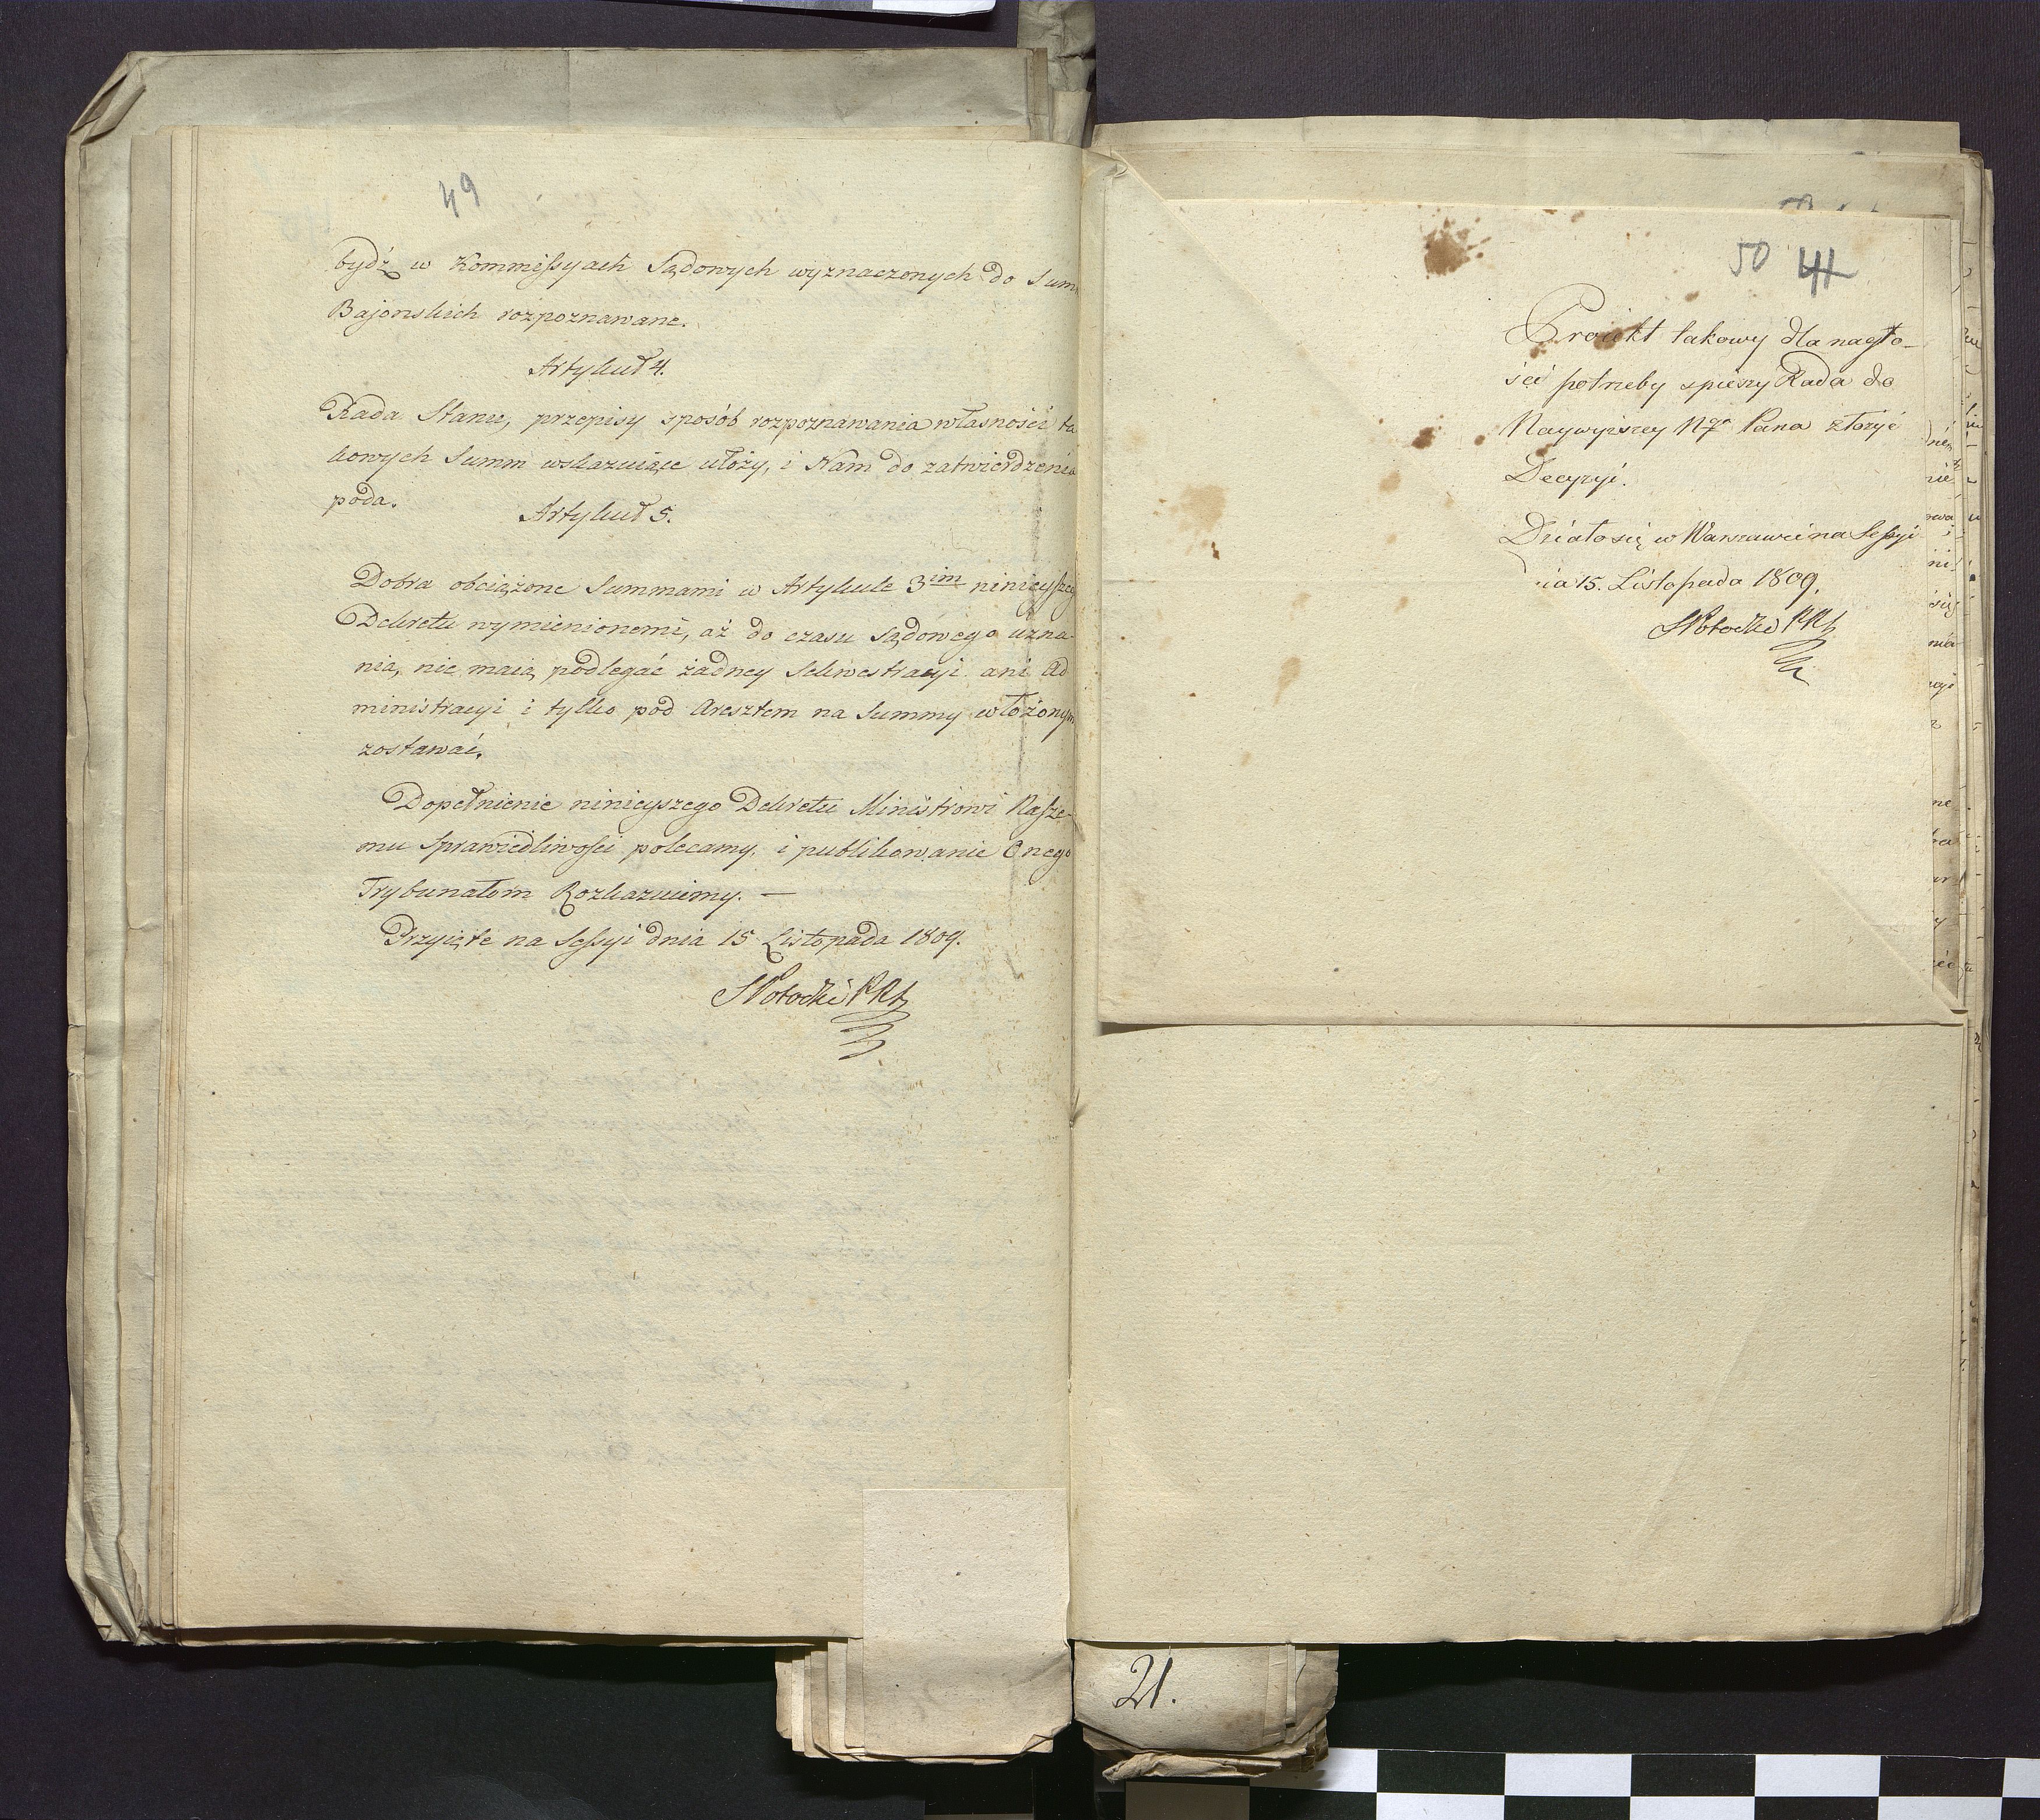 49
bydź w Kommissyach Sądowych wyznaczonych do Summ
Bajońskich rozpoznawane.
Artykuł 4.
Rada Stanu, przepisy sposób rozpoznawania własności ta
kowych Summ wskazuiące ułoży, i Nam do zatwierdzenia
poda.
Artykuł 5.
Dobra obciążone Summami w Artykule 3im ninieyszego
Dekretu wymienionemi, aż do czasu sądowego uzna-
nia, nie maią podlegać żadney Sekwestracyi ani Ad
ministracyi i tylko pod Aresztem na Summy włożonym
zostawać.
Dopełnienie ninieyszego Dekretu Ministrowi Nasze-
mu Sprawiedliwości polecamy, i publikowanie Onego
Trybunałom Rozkazuiemy. —
Przyięte na Sessyi dnia 15 Listopada 1809.
SPotocki PRS
50 41
Proiekt takowy dla nagło-
ści potrzeby spieszy Rada do
Naywyższey NJo Pana złożyć
Decyzyi.
Działo się w Warszawie na Sessyi
dnia 15. Listopada 1809.
SPotocki PRS
21.